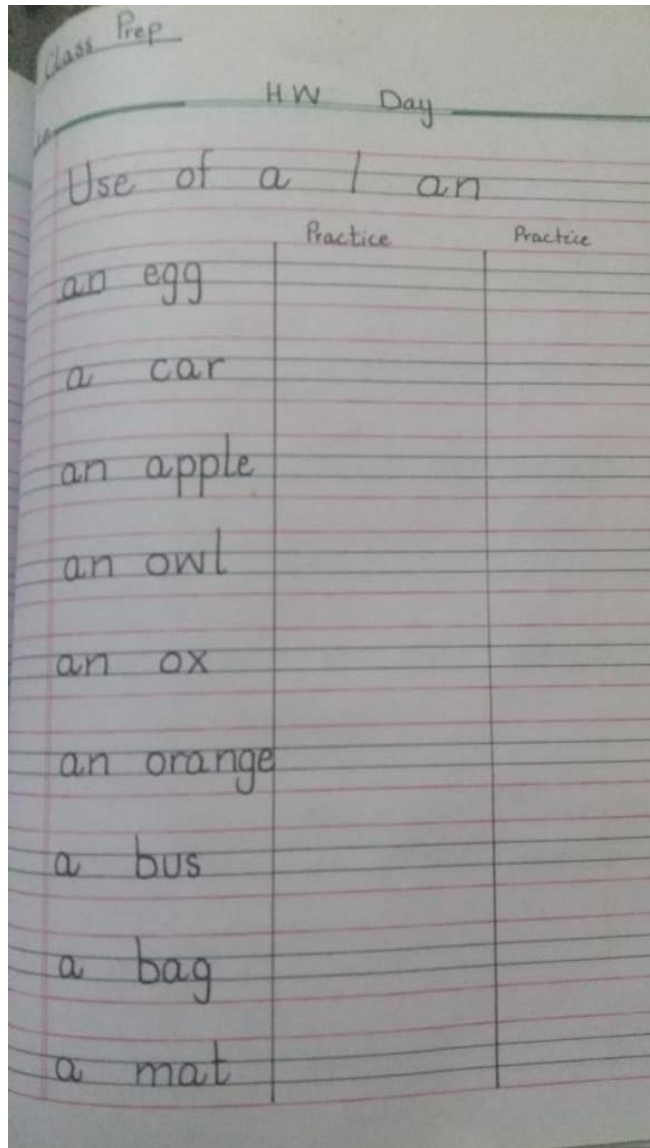 Class Prep
HW Day
Use of a / an
Practice Practice
an egg
a car
an apple
an owl
an ox
an orange
a bus
a bag
a mat